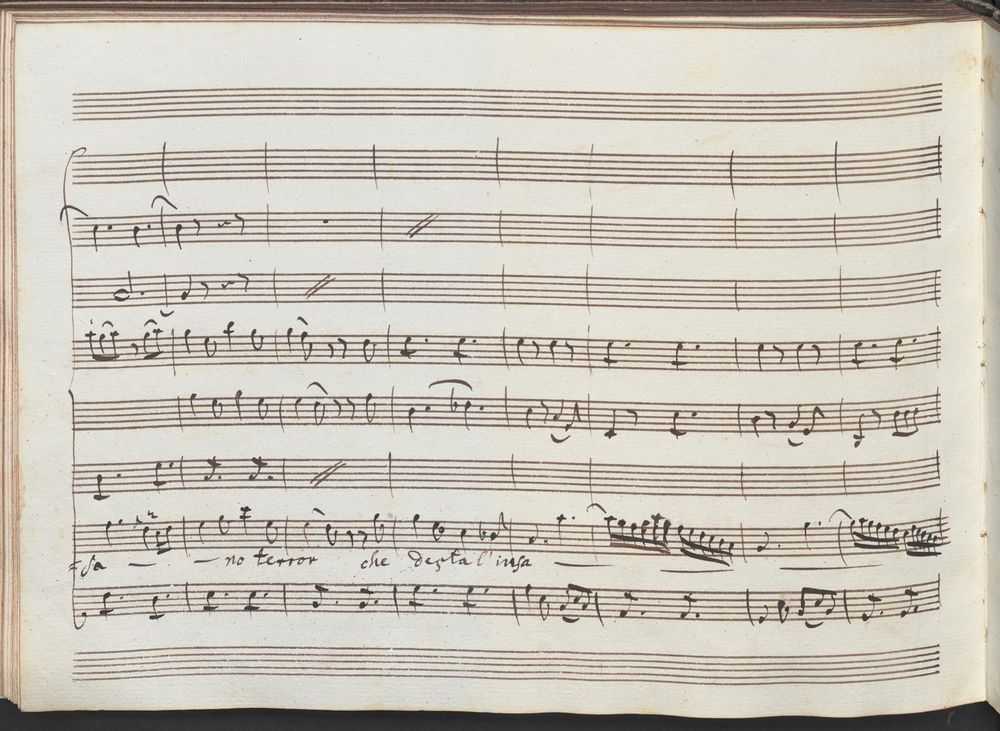 =sa — — no terror che desta l'insa — — —